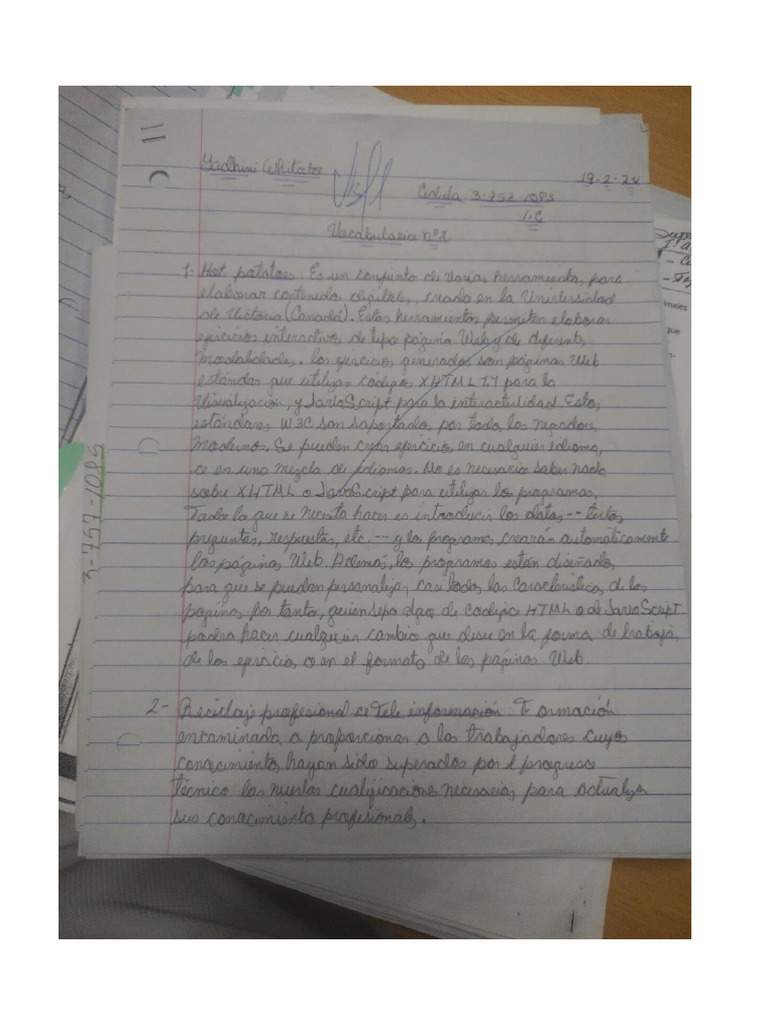 Yadhini Whitaker
19-2-24
Cedula 3-757-1085
1.C
Vocabulario n°2
1- Hot potatoes: Es un conjunto de varias herramienta, para
elaborar contenido digitales, creado en la Universidad
de Victoria (Canadá). Estas herramientas permiten elaborar
ejercicios interactivos de tipo página Web y de diferents
modalidades. los ejercicios generados son páginas Web
estándar que utilizan códigos XHTML 1.1 para la
visualización, y JavaScript para la interactividad. Estos
estándares W3C son soportados por todos los negadores
modernos. Se pueden crear ejercicios en cualquier idioma,
o en una mezcla de idiomas. No es necesario saber nada
sobre XHTML o JavaScript para utilizar los programas.
Todo lo que se necesita hacer es introducir los datos, -- textos,
preguntas, respuestas, etc. -- y los programas crearán automáticamente
las páginas Web. Además, los programas están diseñado
para que se puedan personalizar casi todas las características de las
páginas. por tanto, quien sepa algo de codigo HTML o de JavaScript
podra hacer cualquier cambio que desee en la forma de trabajo,
de los ejercicio, o en el formato de las páginas Web.
2- Reciclaje profesional o Tele información: Formación
encaminada a proporcionar a los trabajadores cuyos
conocimiento hayan sido superados por el progreso
técnico las nuevas cualificaciones necesarias, para actualizar
sus conocimiento profesionales.
3-757-1085
enales
que